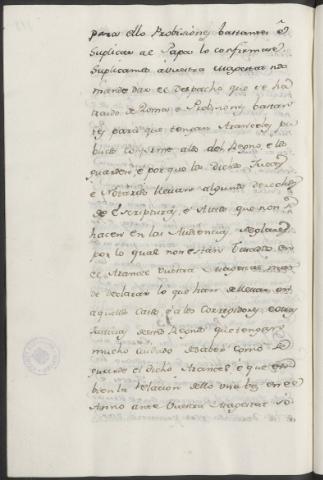 para ello Probisiones bastantes é
Suplicar al Papa lo confirmase
Suplicamos a Vuestra Magestad nos
mande dar el despacho que se ha
traido de Roma é Probisiones bastan
tes para que tengan Aranceles pu
blicos conforme a los del Reyno, é los
guarden é porque los dichos Jueces
é Notarios llevan algunos derechos
de Escripturas, é Autos que non se
hacen en las Audiencias Seglares
por lo qual non estan tasados en
el Arancel Vuestra Magestad man
de declarar lo que han de llevar en
aquellos casos é a los Corregidores, é otras
Justicias de este Reyno que tengan
mucho cuidado de saber como se
guarda el dicho Arancel é que em
bien la relacion dello una vez en el
Anno ante Vuestra Magestad só